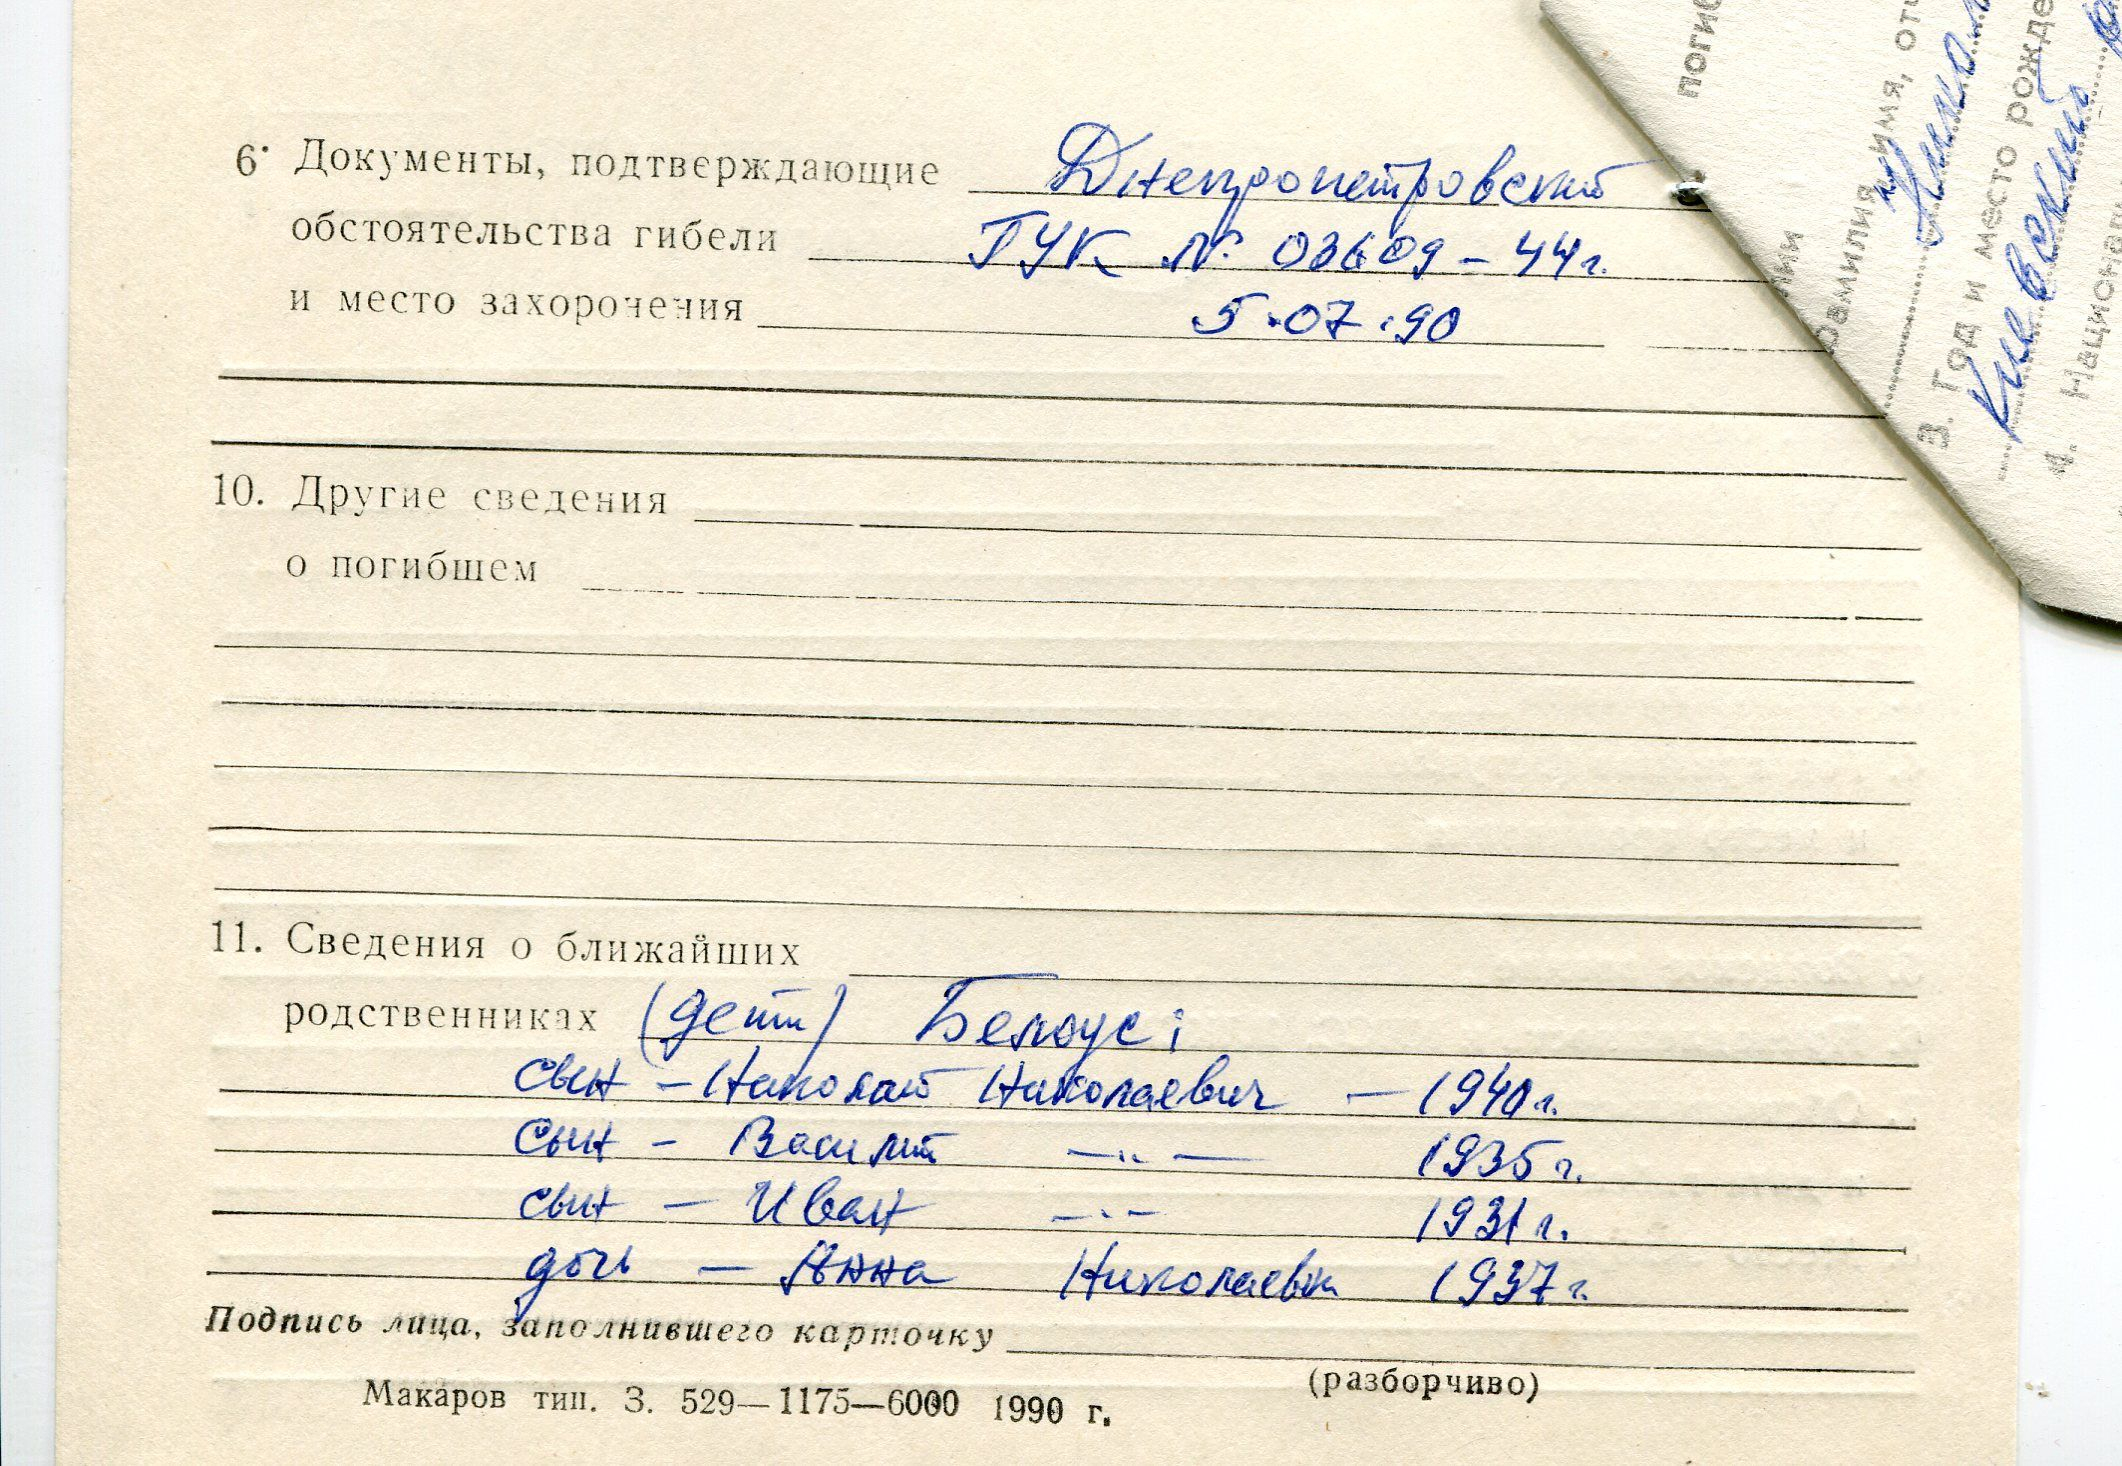 6. Документы, подтверждающие Днепропетровский
обстоятельства гибели ГУК № 03609 - 44 г.
и место захоронения 5.07.90
10. Другие сведения
о погибшем
11. Сведения о ближайших
родственниках (дети) Белоус:
сын - Николай Николаевич - 1940 г.
сын - Василий —"— 1935 г.
сын - Иван —"— 1931 г.
дочь - Анна Николаевн 1937 г.
Подпись лица, заполнившего карточку
(разборчиво)
Макаров тип. З. 529—1175—6000 1990 г.
погиб
имя,
3. Год и место рожде
Киевский
4. Национал